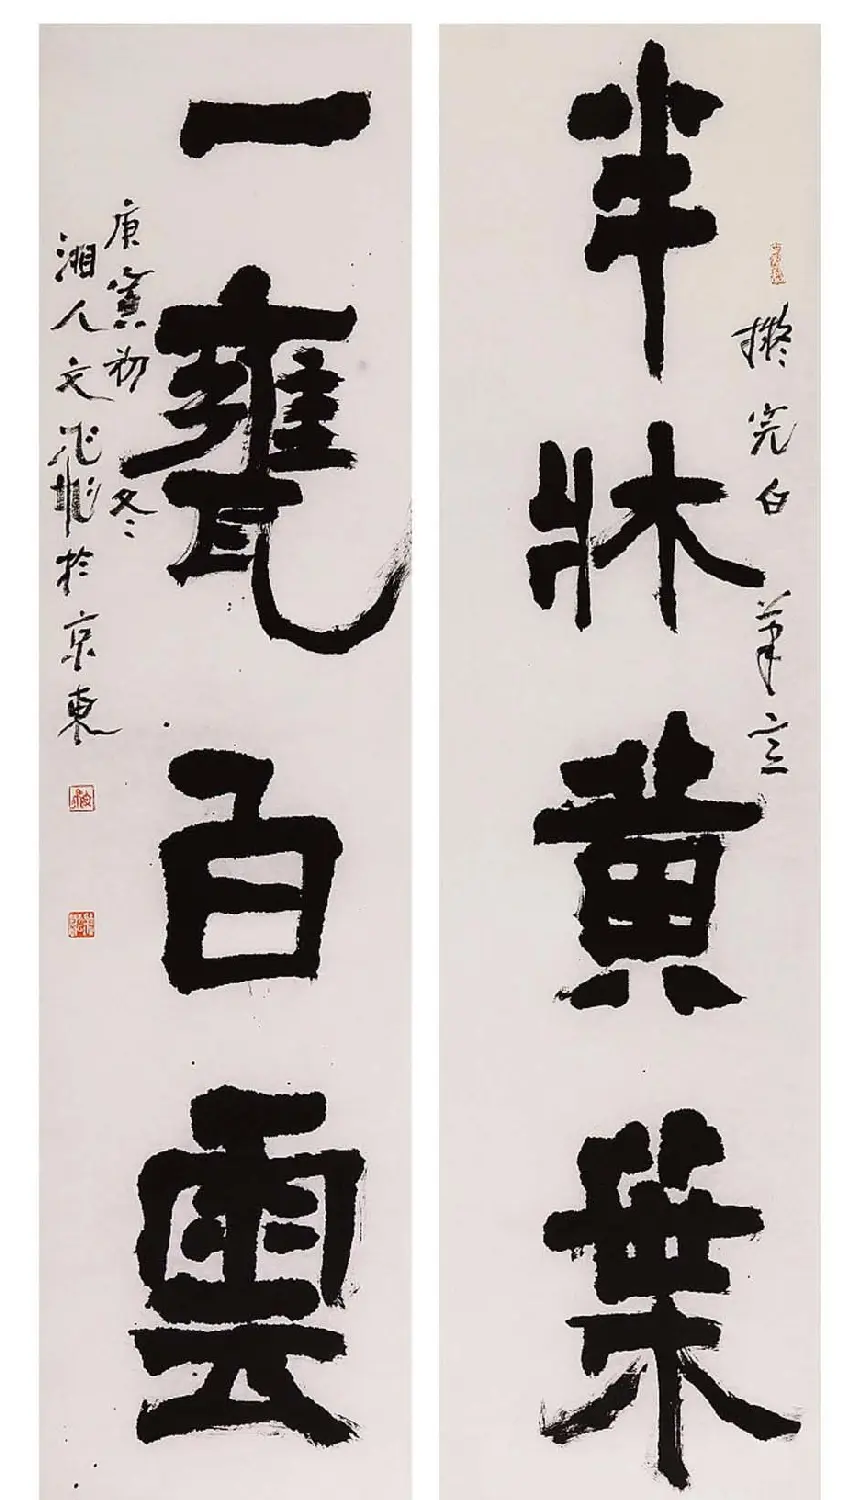 半牀黃葉
擬完白筆意
一甕白雲
庚寅初冬
湘人文永彬於京東